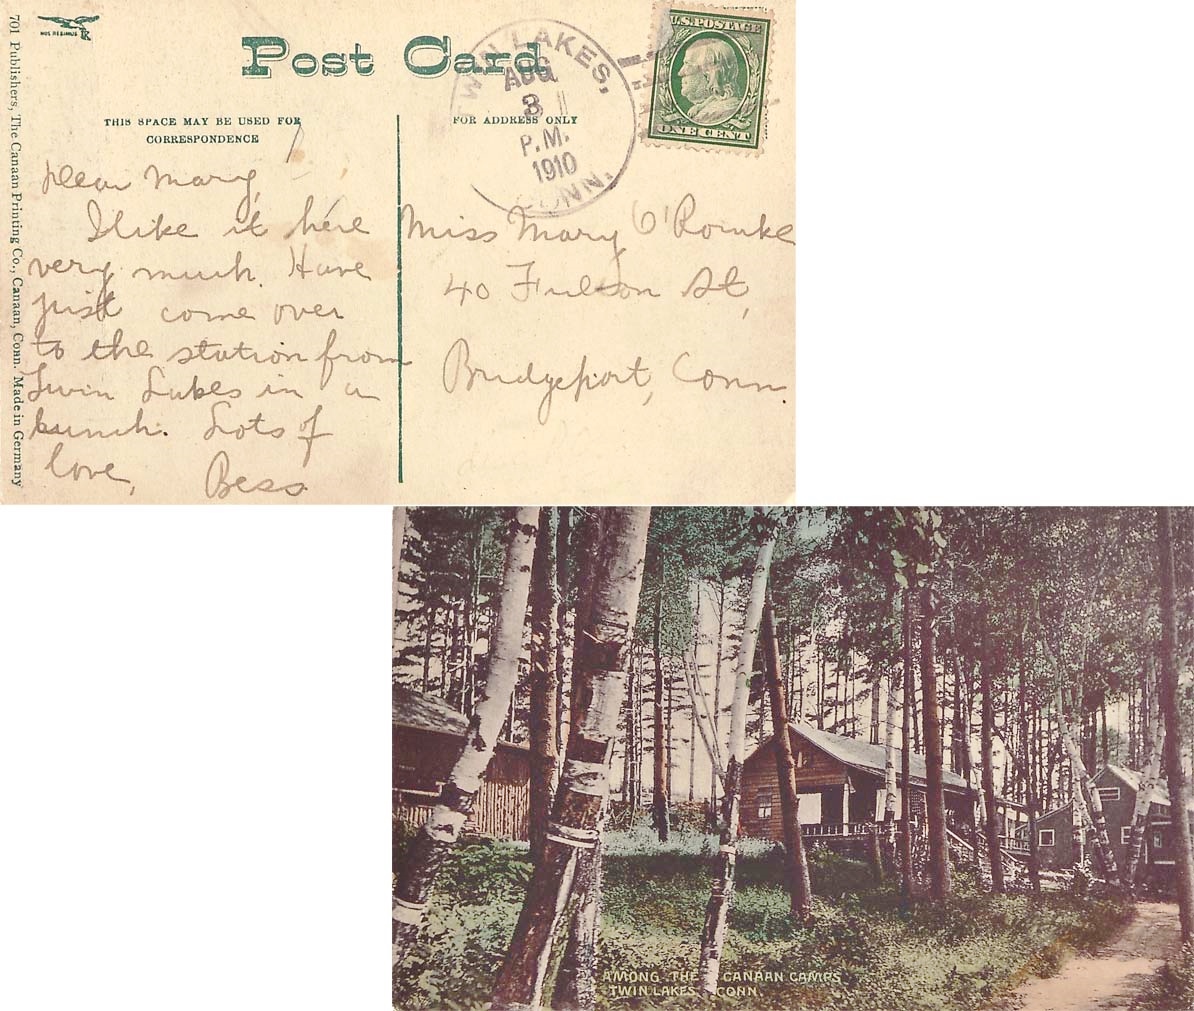 NOS REGIMUS
701 Publishers, The Canaan Printing Co., Canaan, Conn. Made in Germany
Post Card
THIS SPACE MAY BE USED FOR
CORRESPONDENCE
FOR ADDRESS ONLY
TWIN LAKES,
AUG
3
P.M.
1910
CONN.
U.S. POSTAGE
ONE CENT
Dear Mary,
I like it here
very much. Have
just come over
to the station from
Twin Lakes in a
bunch. Lots of
love,
Bess
Miss Mary O'Rourke
40 Fulton St,
Bridgeport, Conn.
AMONG THE CANAAN CAMPS
TWIN LAKES, CONN.